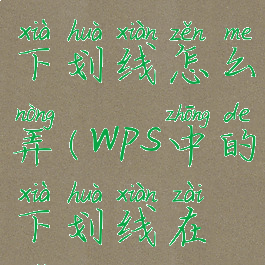 xià huà xiàn zěn me
下划线怎么
nòng zhōng de
弄(WPS中的
xià huà xiàn zài
下划线在